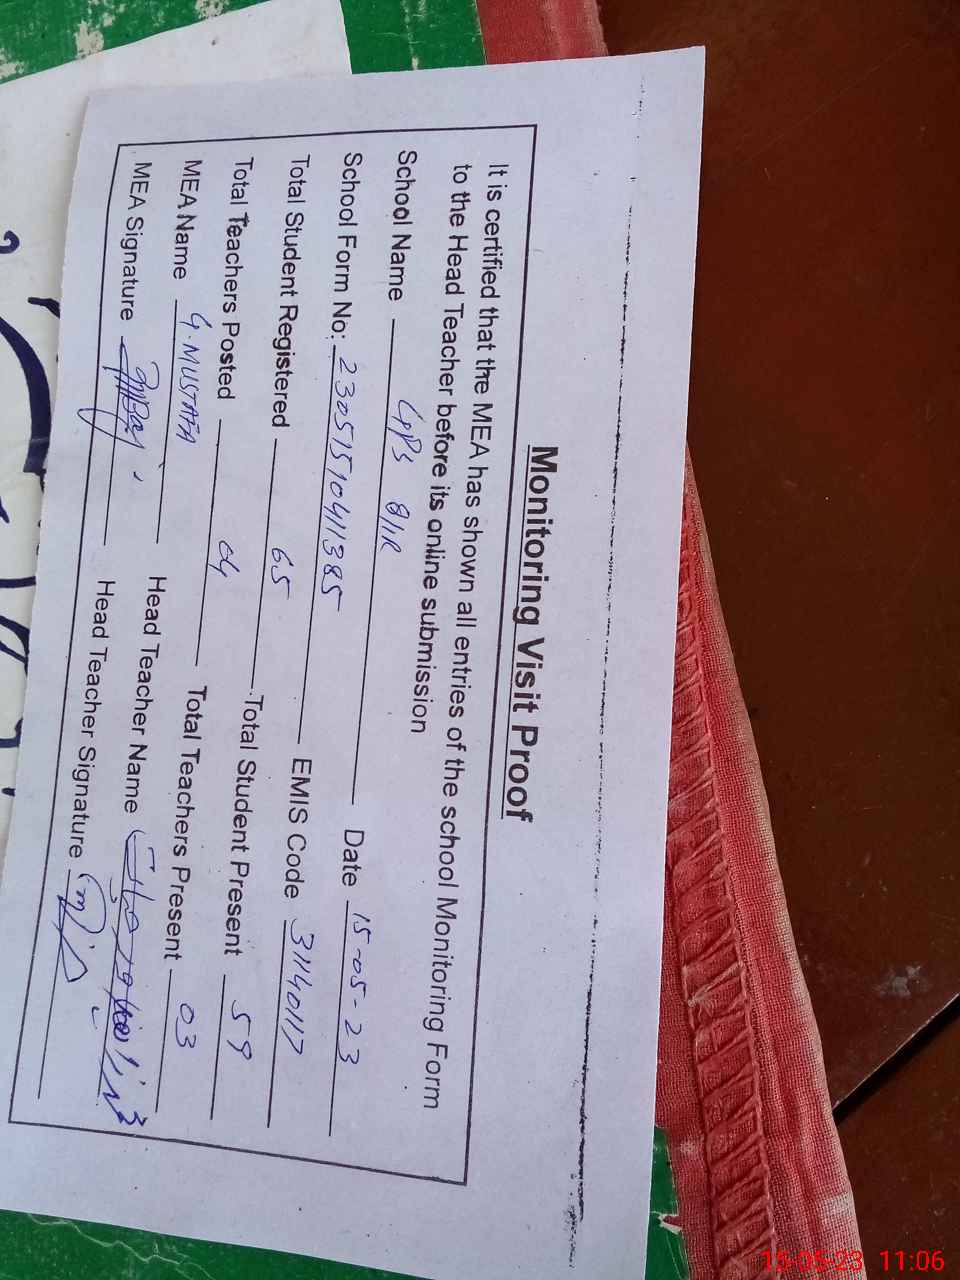 Monitoring Visit Proof
It is certified that the MEA has shown all entries of the school Monitoring Form
to the Head Teacher before its online submission
School Name GPS 8/1R Date 15-05-23
School Form No: 23051510411385 EMIS Code 31140117
Total Student Registered 65 Total Student Present 59
Total Teachers Posted 04 Total Teachers Present 03
MEA Name G.MUSTAFA Head Teacher Name
MEA Signature Head Teacher Signature
15-05-23 11:06